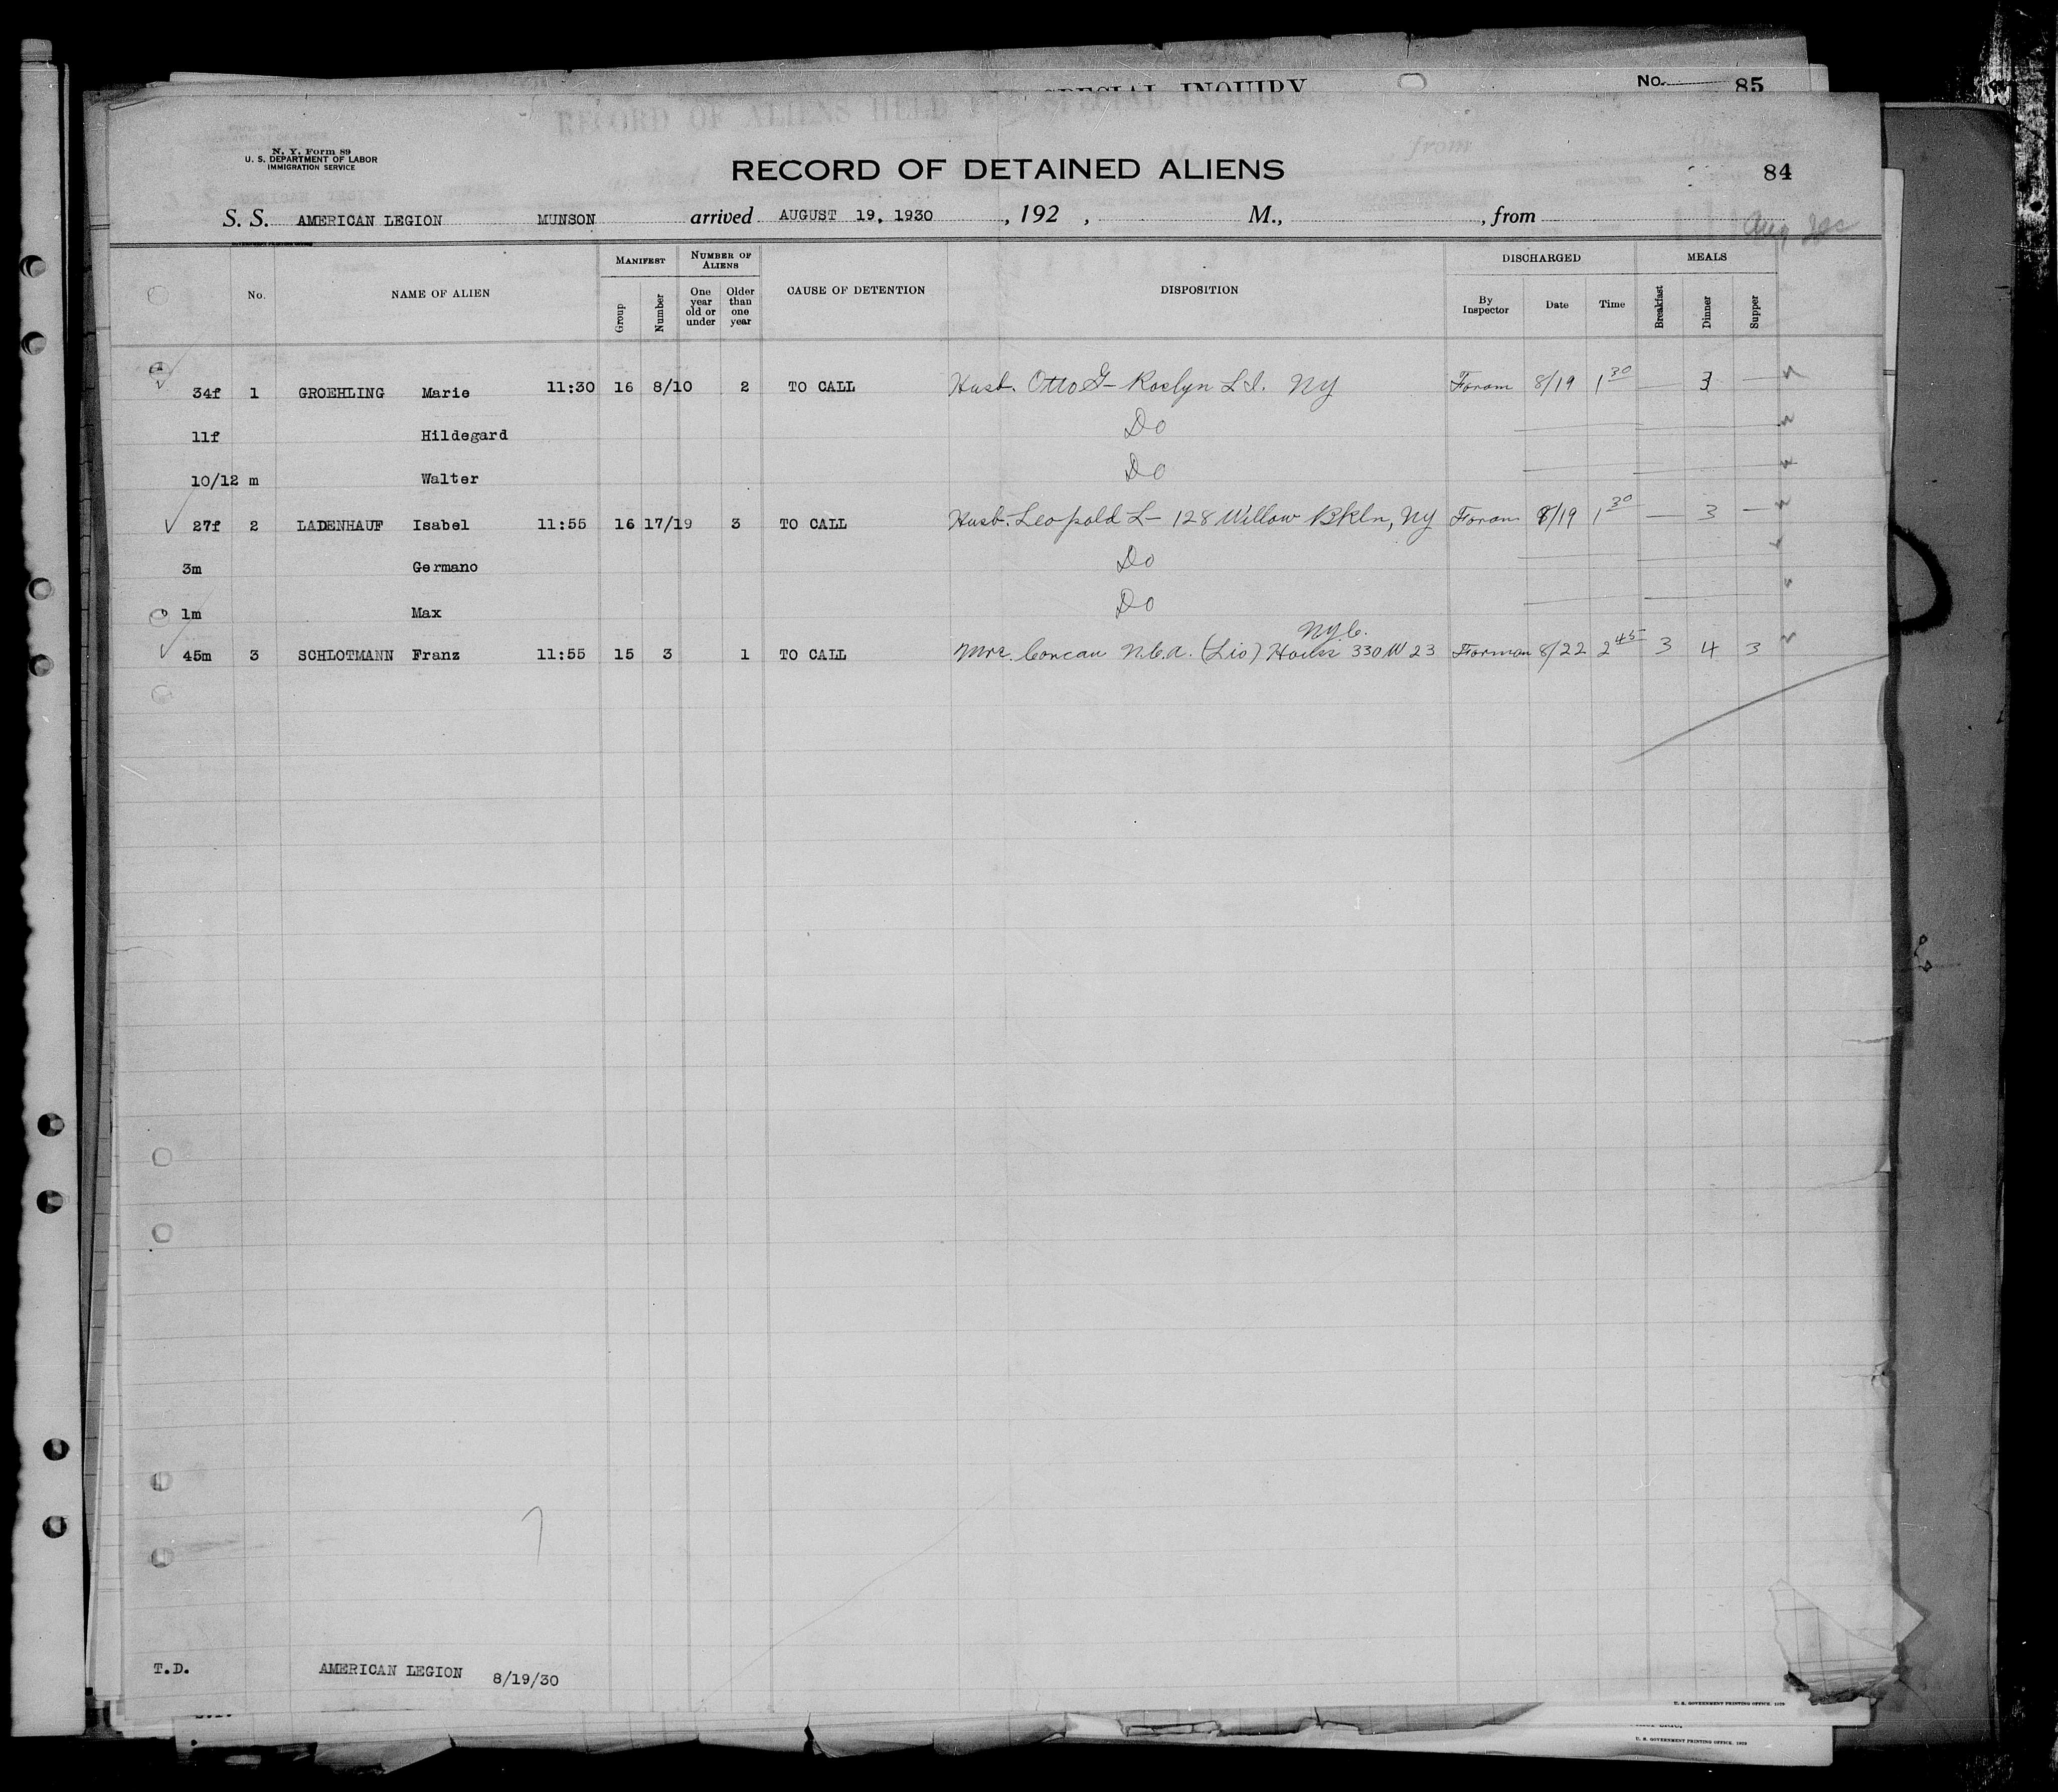 SPECIAL INQUIRY No. 85
RECORD OF ALIENS HELD FOR SPECIAL INQUIRY
N. Y. Form 89
U. S. DEPARTMENT OF LABOR
IMMIGRATION SERVICE
RECORD OF DETAINED ALIENS
84
S. S. AMERICAN LEGION MUNSON arrived AUGUST 19, 1930 , 192 , M., , from
Aug
MANIFEST NUMBER OF ALIENS DISCHARGED MEALS
No. NAME OF ALIEN Group Number One year old or under Older than one year CAUSE OF DETENTION DISPOSITION By Inspector Date Time Breakfast Dinner Supper
34f 1 GROEHLING Marie 11:30 16 8/10 2 TO CALL Husb. Otto G- Roslyn L.I. NY Foram 8/19 1 30 — 3 —
11f Hildegard Do
10/12 m Walter Do
27f 2 LADENHAUF Isabel 11:55 16 17/19 3 TO CALL Husb. Leopold L- 128 Willow Bkln, NY Foram 8/19 1 30 — 3 —
3m Germano Do
1m Max Do
NYC.
45m 3 SCHLOTMANN Franz 11:55 15 3 1 TO CALL Mrs. (Leo) House 330 W 23 Forman 8/22 2 45 3 4 3
T.D. AMERICAN LEGION 8/19/30
U. S. GOVERNMENT PRINTING OFFICE. 1929
U. S. GOVERNMENT PRINTING OFFICE. 1929